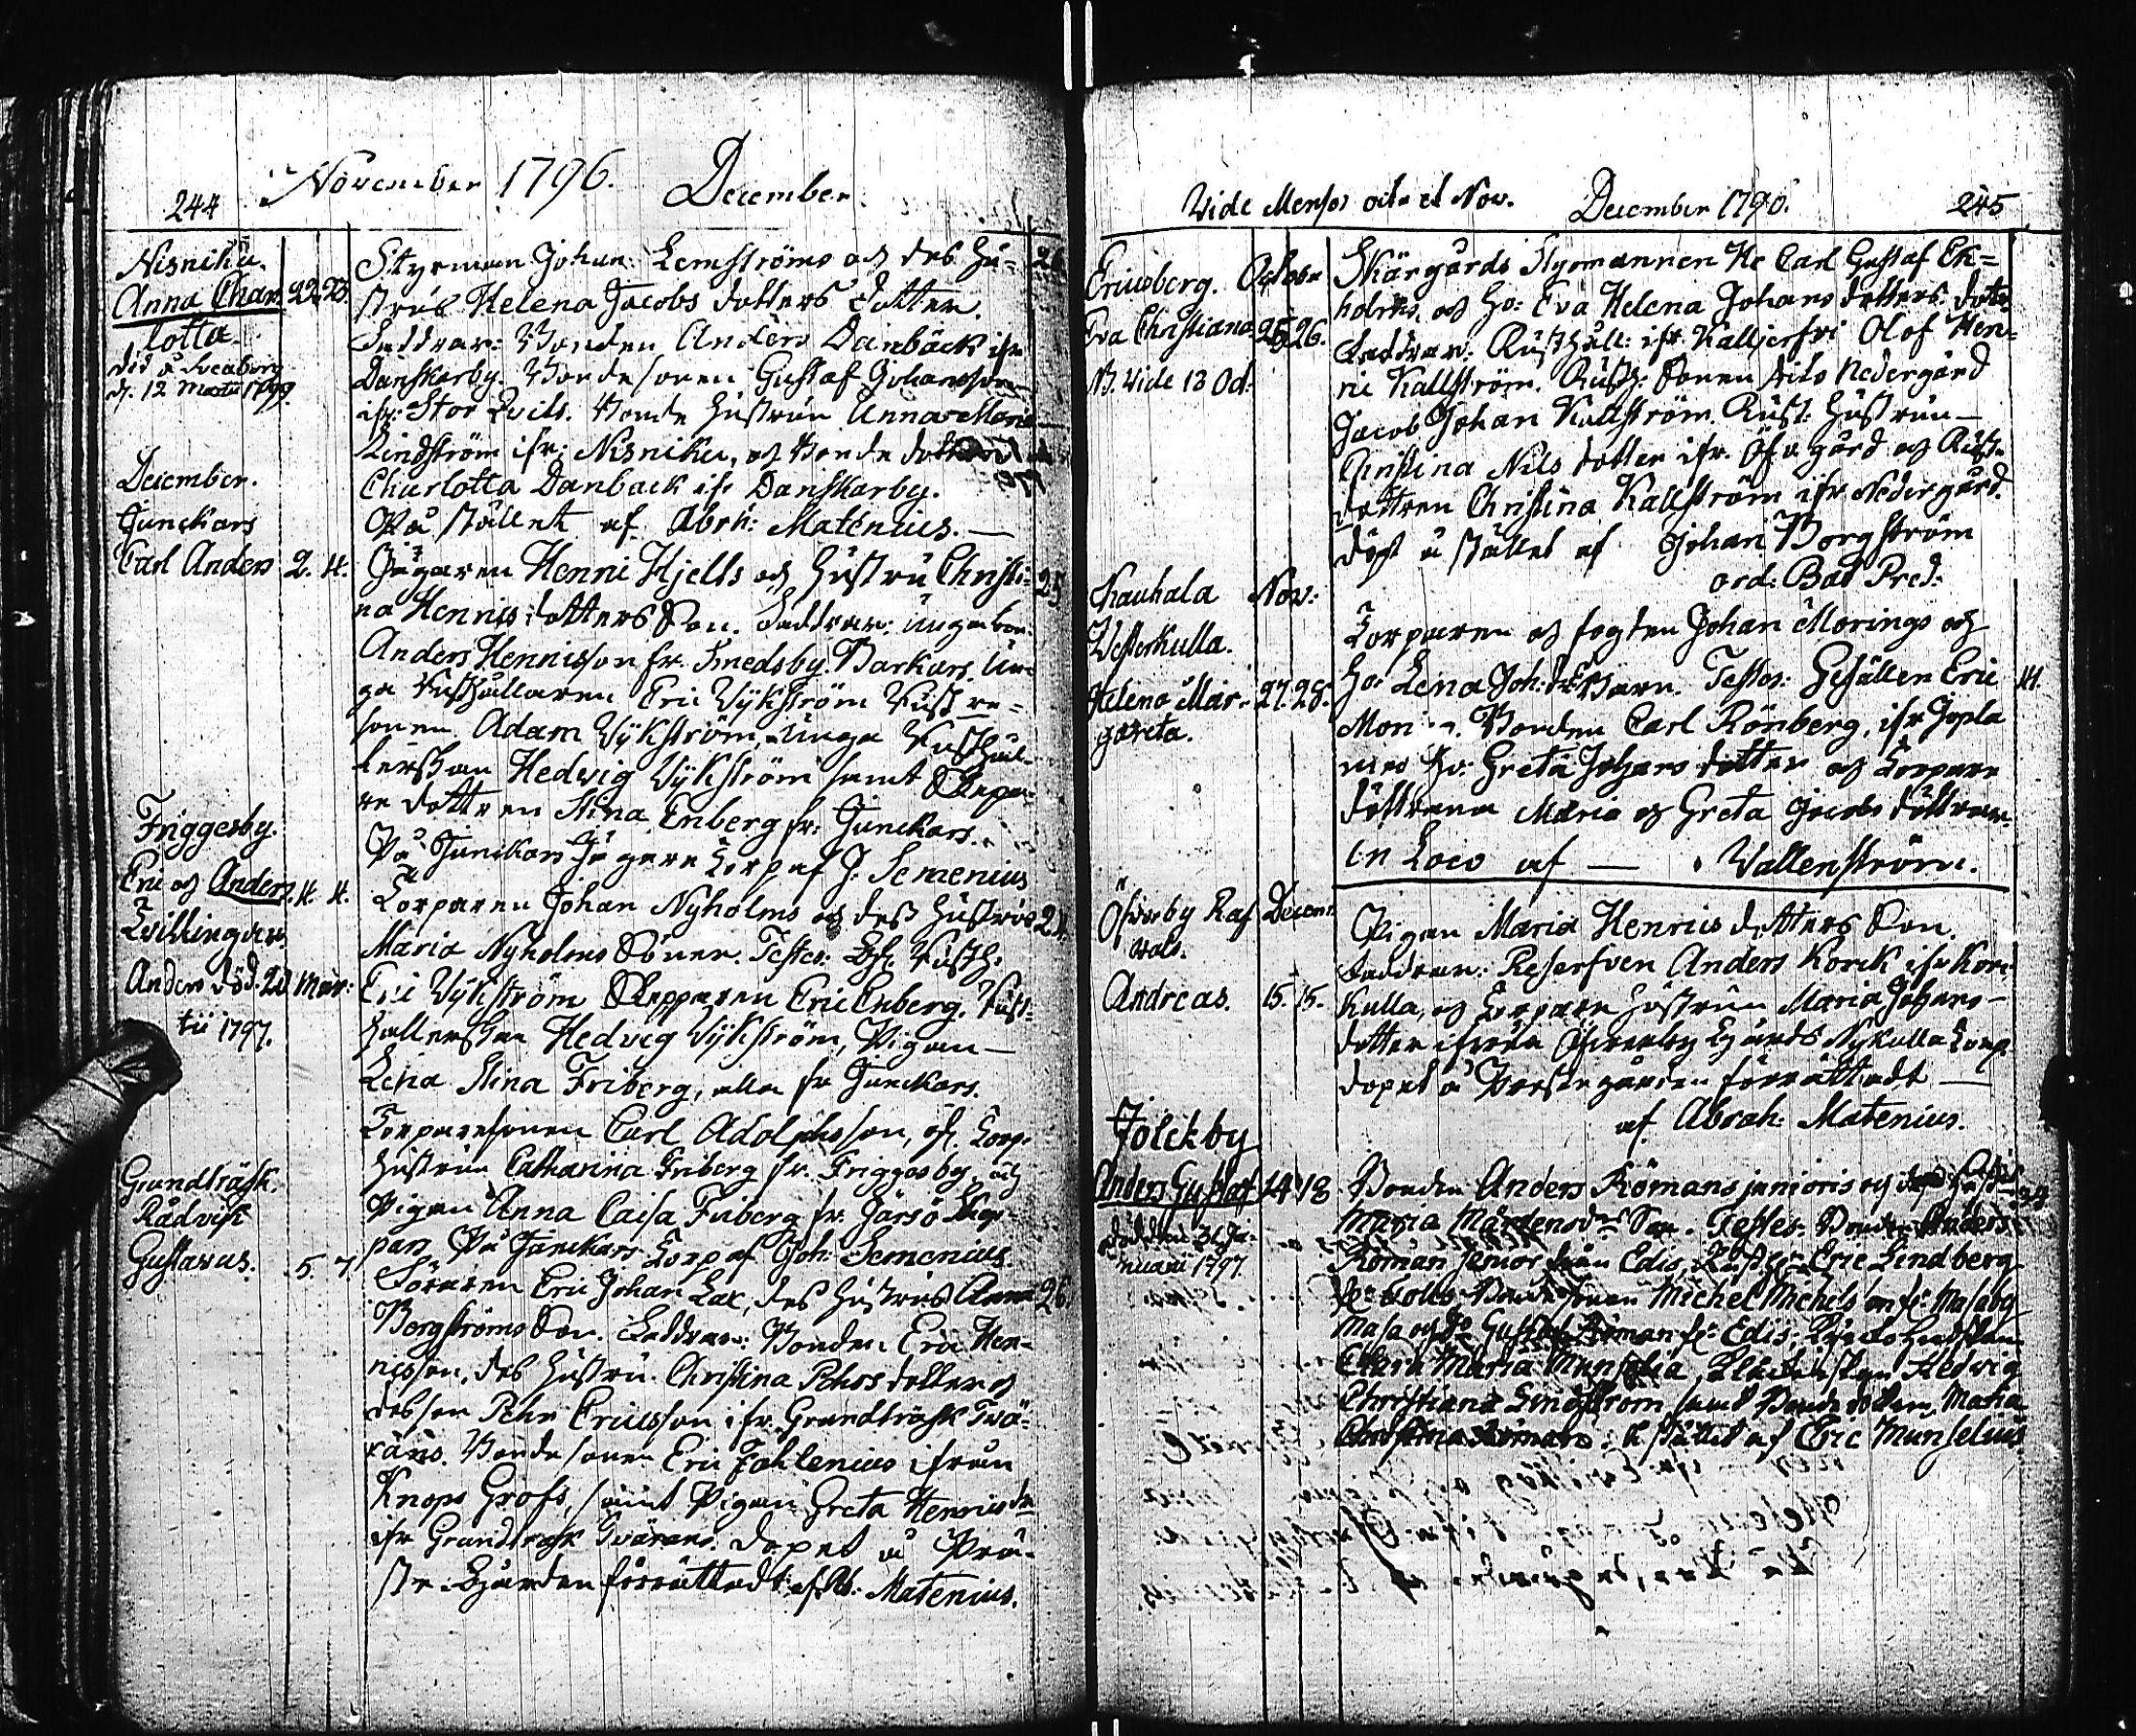 244 November 1796. December.
Nisniku.
Anna Char= 22. 23.
lotta.
död å Sveaborg
d. 12 Martii 1799.
Styrman Johan Lemströms och des Hu= 26
strus Helena Jacobs dotters dotter.
Faddrar: Bonden Anders Danbäck ifr
Danskarby. Bondesonen Gustaf Johansson
ifr: Stor Qvits. Bonde Hustrun Anna Maria
Lindström ifr: Nisniku, och Bonde dottren
Charlotta Danback ifr Danskarby.
På stället af Abrh: Matenius.
December.
Junckars
Carl Anders 2. 4.
Jägaren Henric Hjelts och Hustru Christi= 25
na Henrics dotters Son. Faddrar: Unga bon.
Anders Henricsson fr. Smedsby Barkars. Un=
ga Rusthållaren Eric Wykström Rust
sonen Adam Wykström, Unga Rusthål=
lerskan Hedvig Wykström samt Skepa=
re dottren Stina Enberg fr: Junckars.
På Junckars Jägare Torp af J. Semenius
Friggesby.
Eric och Anders. 4. 4.
Tvillingar
Anders död. 20 Mar=
tii 1797.
Torparen Johan Nyholms och dess Hustrus
Maria Nyholms Söner. Testes: Rusth:
Eric Wykström Skepparen Eric Enberg. Rust=
hallerskan Hedvig Wykström, Pigan
Lena Stina Friberg, alla fr Junckars.
Torparesonen Carl Adolphsson, och Torp.
Hustrun Catharina Friberg fr. Friggesby, och
Pigan Anna Caisa Friberg fr. Jársö
På Junckars Torp af Joh: Semenius
Grundträsk.
Rådvik
Gustavus. 5. 7.
Eric Johan Lax, des Hustrus Anna 26.
Bergströms Son. Faddrar: Bonden Eric Hen=
ricsson, des Hustru Christina Pehrs dotter och
dess son Pehr Ericsson ifr. Grundträsk Två=
räns. Bondesonen Eric Fahlenius ifrån
Knops Grofs, samt Pigan Greta Henrics dr
ifr Grundträsk Tvärans. Dopet å Prä=
ste Gården förrättadt af Ab: Matenius.
Vide Menses oct. et Nov. December 1790. 245
Ericsberg. October
Eva Christiana 25 26.
N. Vide 13 Oct.
Skärgårds Styrmannen Hr Carl Gustaf Ek=
holms, och Ho: Eva Helena Johans dotters dotter
Faddrar: Rusthåll: ifr Kalljerfvi Olof Hen=
ric Kallström. Rusth: Sonen Nedergård
Jacob Johan Kallström Rust: Hustrun
Christina Nils dotter ifr. Öfvergård och Rusth
dottren Christina Kallström ifr Nedergård.
döpt å stället af Johan Borgström
ord: Bat Pred:
Kauhala Nov:
Westerkulla.
Helena Mar= 27. 28.
gareta.
Torparen och fogten Johan Morings och
Ho: Lena Joh: dr Barn. Testes: Gesällen Eric 41
Mon Bonden Carl Rönberg, ifr
Ho: Greta Johans dotter och Torpare
döttrarna Maria och Greta Jacobs döttrar.
in Loco af Wallenström.
Öfverby
Decemr
Andreas. 15. 15.
Pigan Maria Henrics dotters Son.
Faddrar: Reserfven Anders Korck ifr Korc
kulla, och Torpare Hustrun Maria Johans
dotter ifrån Öfverby Gårds Nykulla Torp
dopet å Prestegården förrättadt
af Abrah: Matenius.
Jolckby
Anders Gustaf 14 18
död den 31 Ja=
nuarii 1797.
Bonden Anders Römans junioris och dess Hustrus
Maria Mårtensdrs Son. Testes: Bonden Anders
Röman senior från Edis, Rusth: Eric Lindberg
fr Tolls Bondesonen Michel Michelsson fr: Masaby
Masa och Do Gustaf Röman fr: Edis,
Clara Maria Munselia, Hedvig
Christiana Lindström samt Bonde dottren Maria
Christina Röman: å stället af Eric Munselius